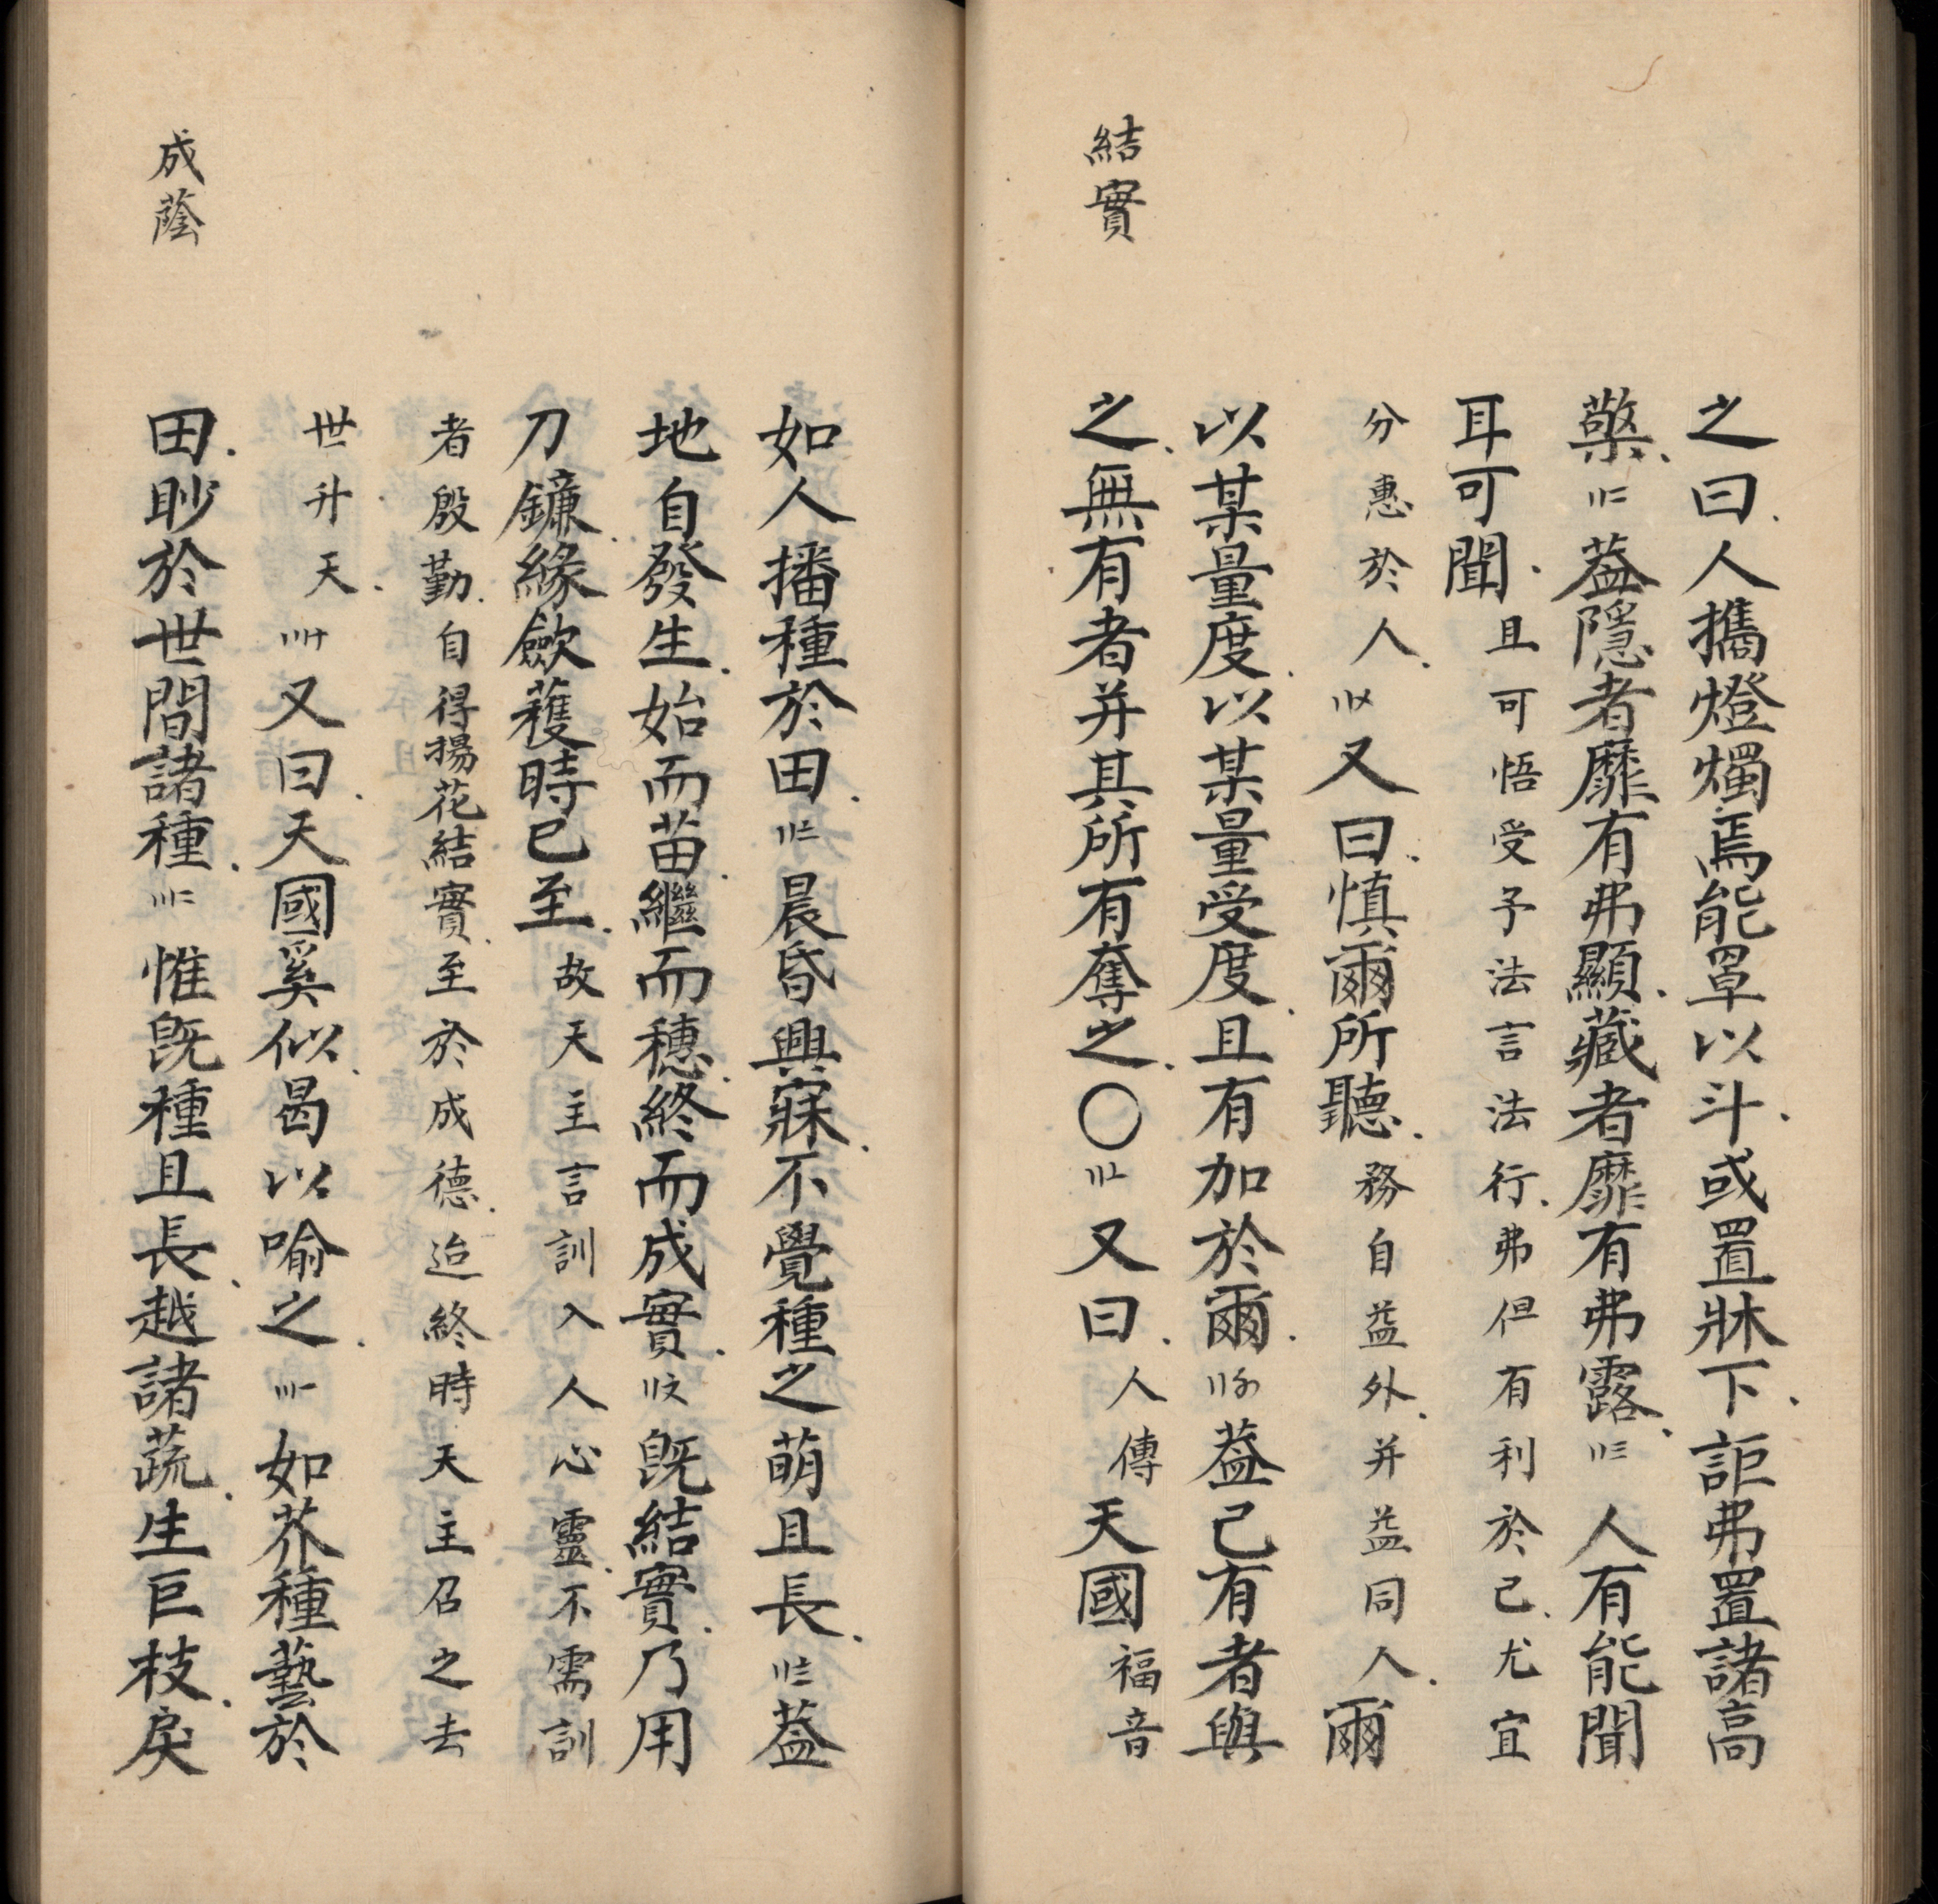 之曰人攜燈燭焉能罩以斗或置牀下詎弗置諸高
檠〢二葢隱者靡有弗顯藏者靡有弗露〢三人有能聞
耳可聞且可悟受予法言法行弗但有利於己尤宜
分惠於人〢〤又曰慎爾所聽務自益外并益同人爾
以某量度以某量受度且有加於爾〢〥葢己有者與
結實
之無有者并其所有奪之〇〢〦又曰人傳天國福音
如人播種於田〢〧晨昏興寐不覺種之萌且長〢〨葢
地自發生始而苗繼而穗終而成實〢〩既結實乃用
刀鐮緣歛穫時已至故天主言訓入人心靈不需訓
者殷勤自得揚花結實至於成德迨終時天主召之去
世升天〣〸又曰天國奚似曷以喻之〣一如芥種藝於
成蔭
田眇於世間諸種〣二惟既種且長越諸蔬生巨枝戾